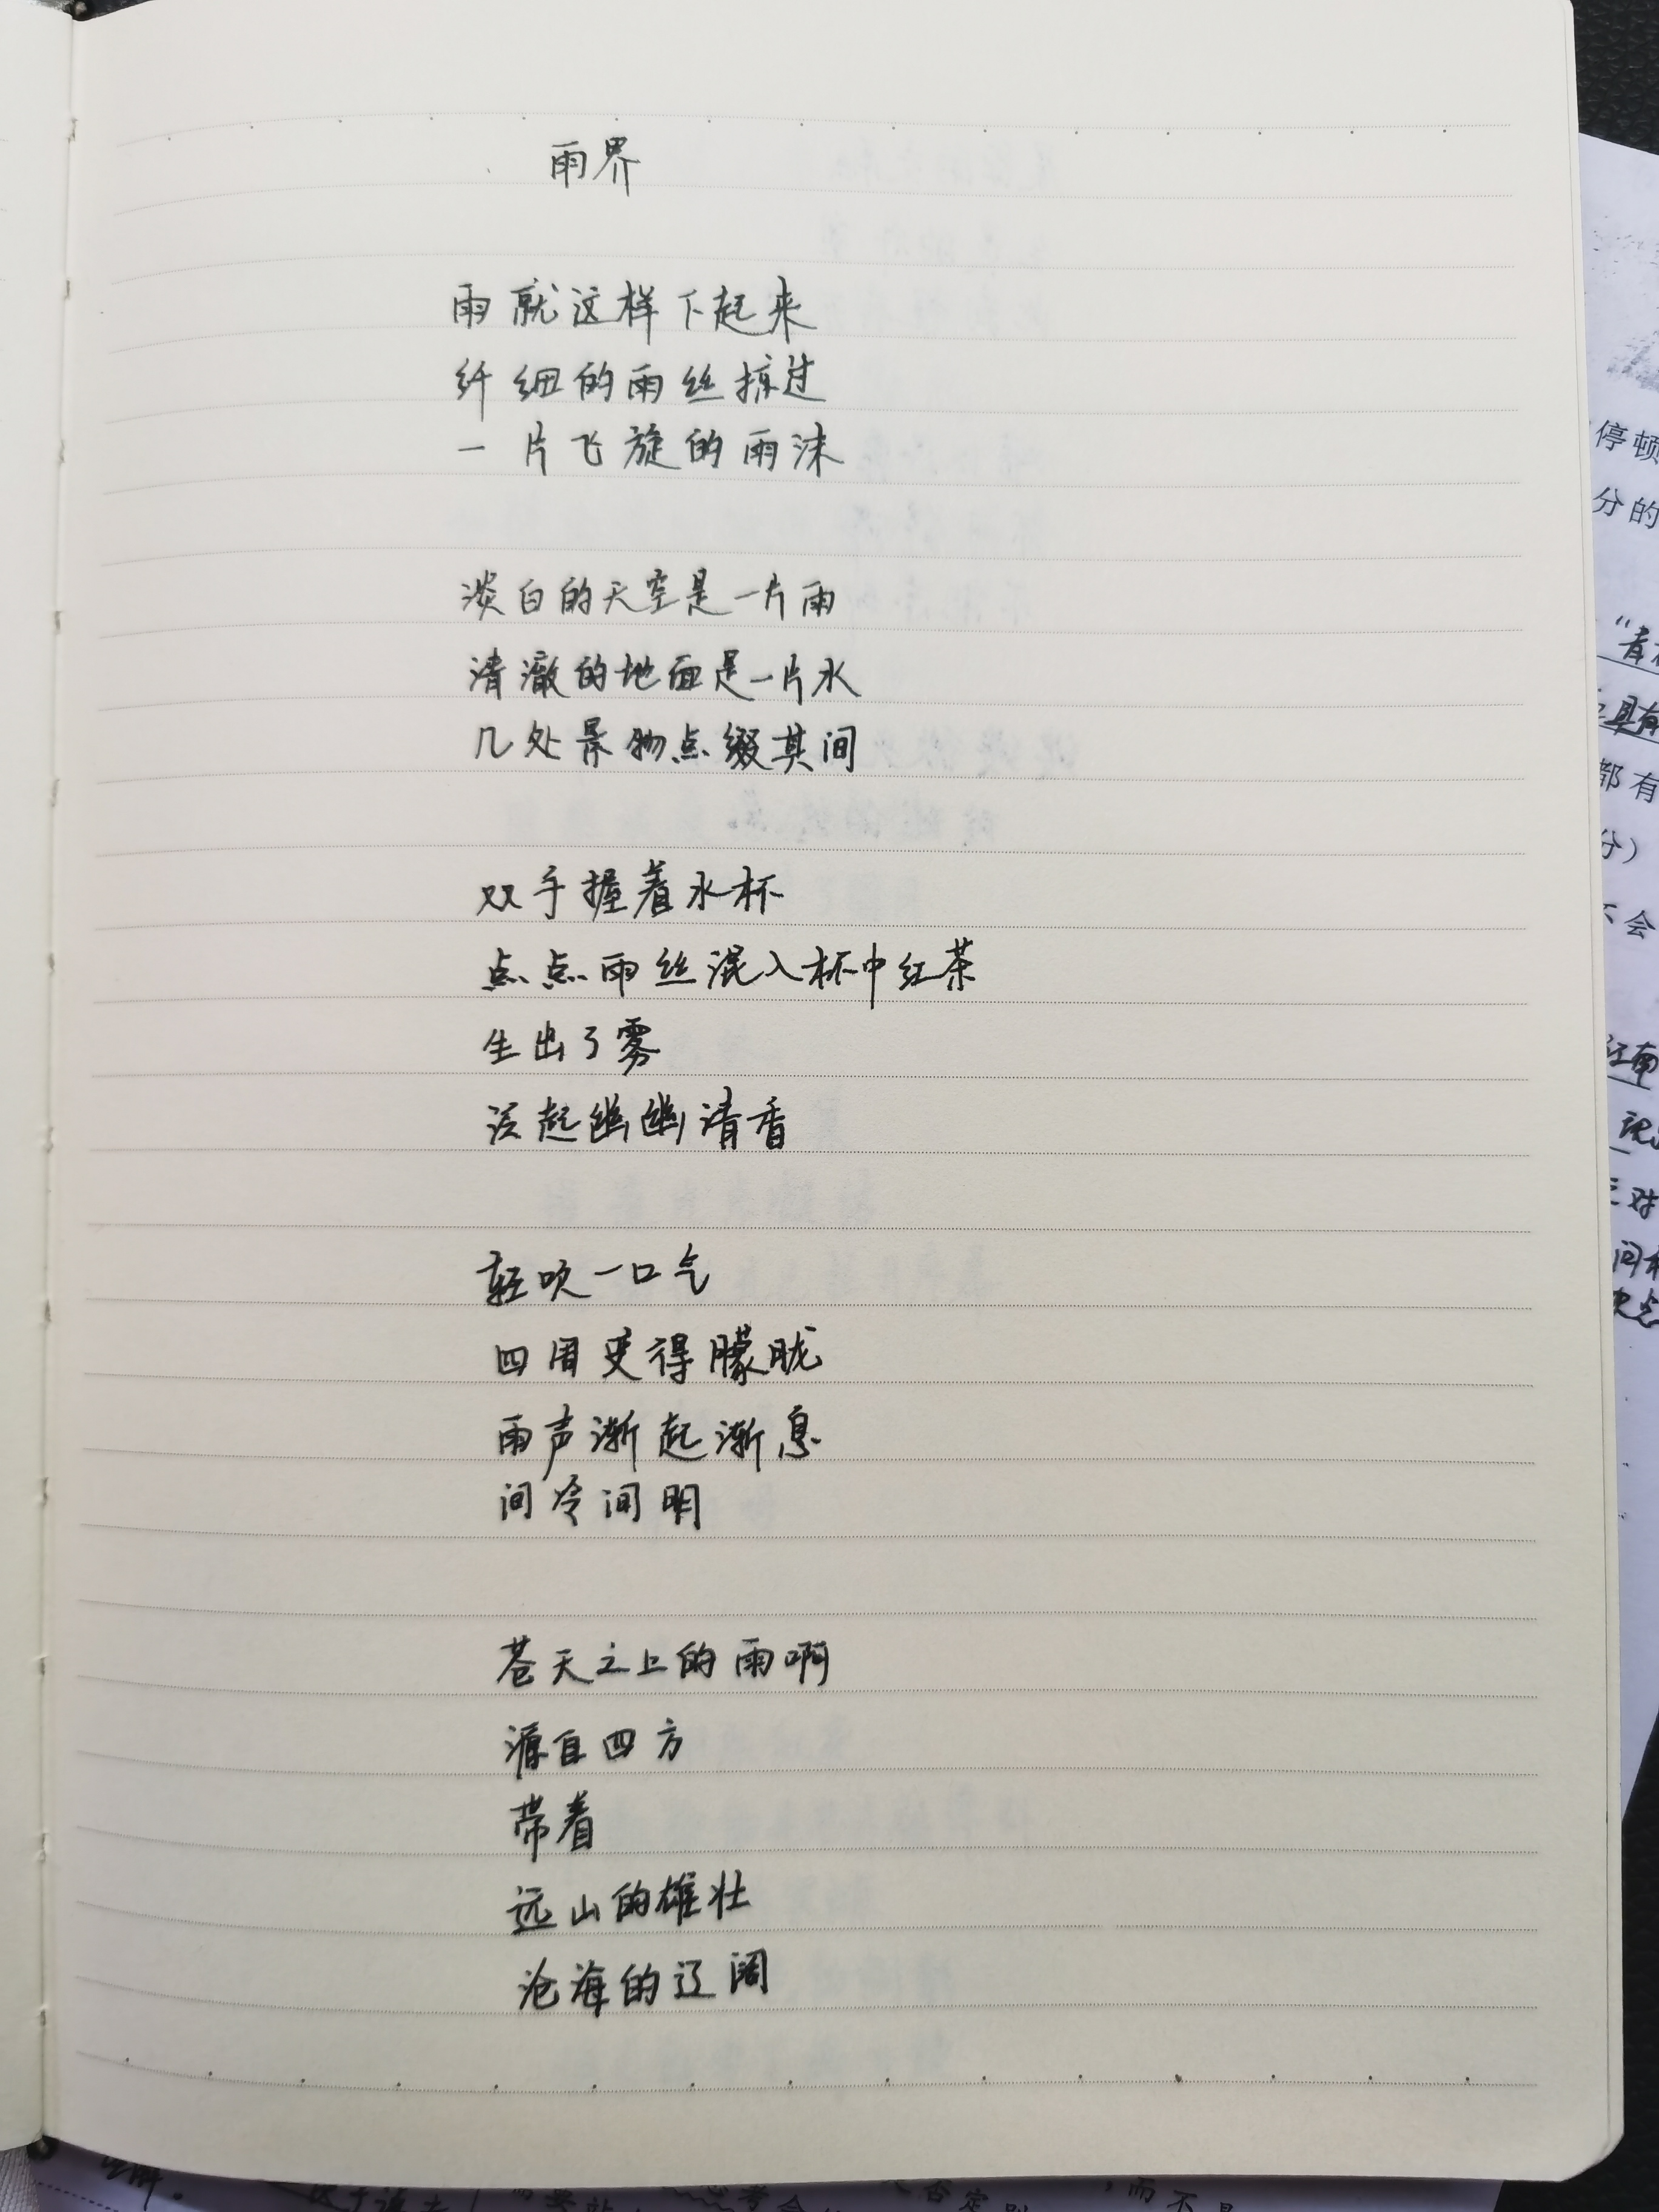 雨界
雨就这样下起来
纤细的雨丝掠过
一片飞旋的雨沫
淡白的天空是一片雨
清澈的地面是一片水
几处景物点缀其间
双手握着水杯
点点雨丝混入杯中红茶
生出了雾
泛起幽幽清香
轻吹一口气
四周变得朦胧
雨声渐起渐息
间冷间明
苍天之上的雨啊
源自四方
带着
远山的雄壮
沧海的辽阔
停顿
分的
都有
分）
不会
江南